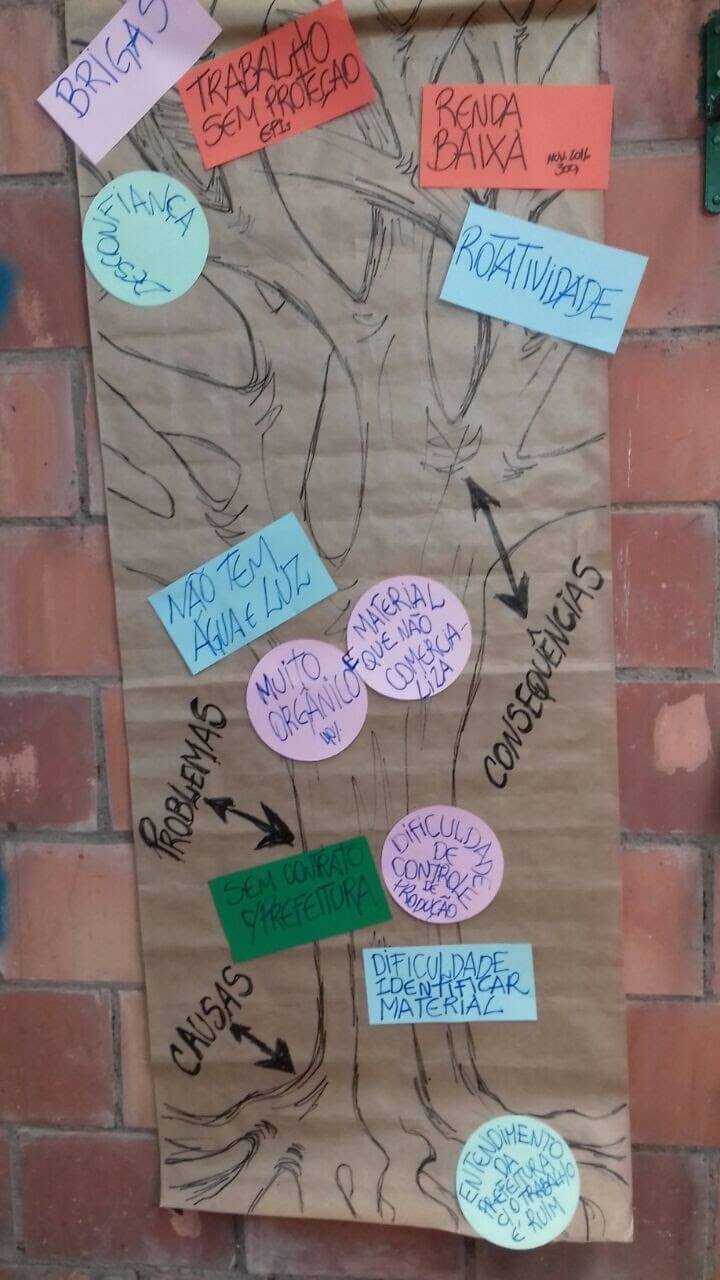 BRIGAS
TRABALHO
SEM PROTEÇÃO
EPIs
RENDA
BAIXA
DESCONFIANÇA
ROTATIVIDADE
NÃO TEM
ÁGUA E LUZ
MATERIAL
QUE NÃO
COMERCIA-
LIZA
E
MUITO
ORGÂNICO
CONSEQUÊNCIAS
PROBLEMAS
DIFICULDADE
DE
CONTROLE
DE
PRODUÇÃO
SEM CONTRATO
C/PREFEITURA
DIFICULDADE
IDENTIFICAR
MATERIAL
CAUSAS
ENTENDIMENTO
DA
PREFEITURA
C/ O TRABALHO
É RUIM